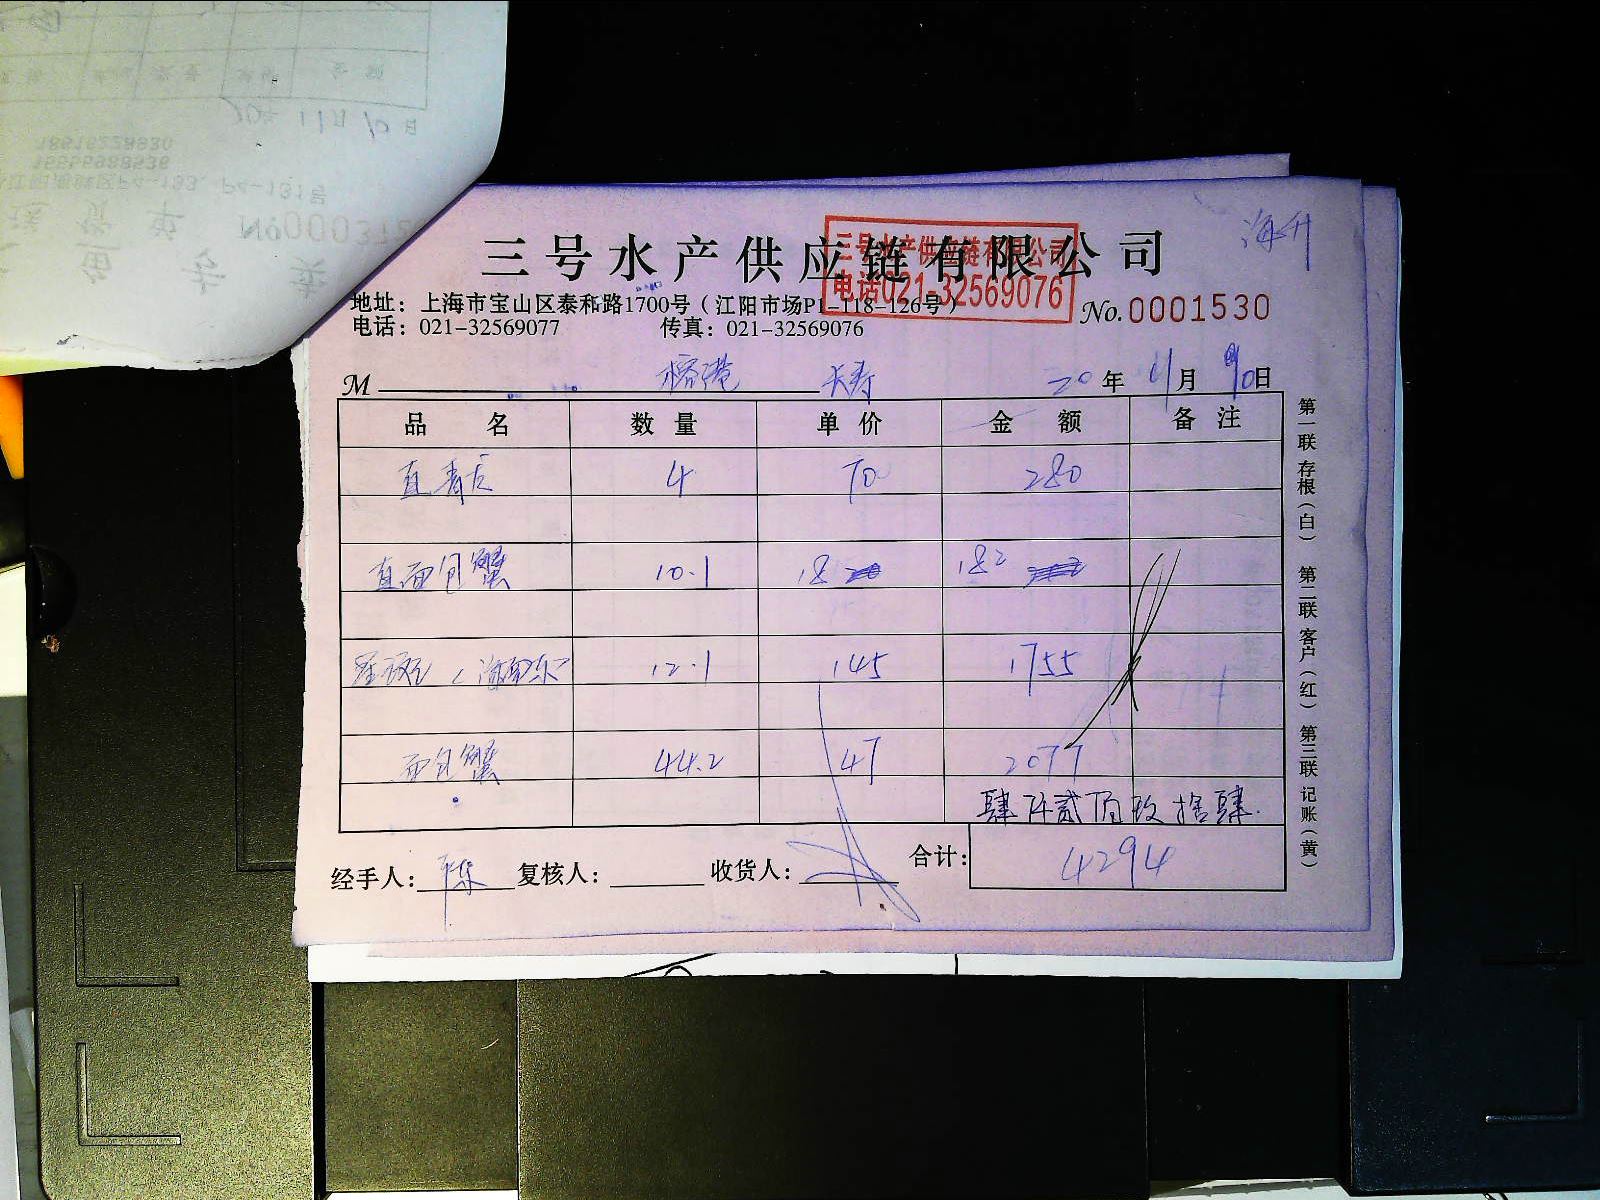 海升
三号水产供应链有限公司
三号水产供应链有限公司
电话021-32569076
地址：上海市宝山区泰和路1700号（江阳市场P1-118-126号）
No.0001530
电话：021-32569077 传真：021-32569076
M 榕港 长寿 20年 11月 10日
品名 数量 单价 金额 备注
直青斤 4 70 280
直面包蟹 10.1 18 182
12.1 145 1755
面包蟹 44.2 47 2077
肆仟贰佰玖拾肆
经手人：陈 复核人： 收货人： 合计：4294
第一联 存根（白） 第二联 客户（红） 第三联 记账（黄）
20年11月10日
18616228930
15555938536
P4-133、P4-131号
送货单 №000378